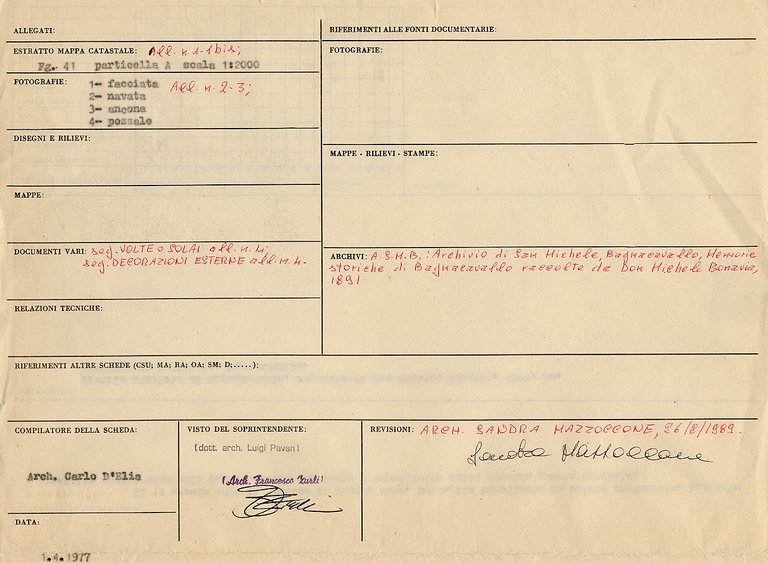 ALLEGATI:
ESTRATTO MAPPA CATASTALE: All. n. 1-1bis;
Fg. 41 particella A scala 1:2000
FOTOGRAFIE: 1- facciata All. n. 2-3;
2- navata
3- ancona
4- pozzale
DISEGNI E RILIEVI:
MAPPE:
DOCUMENTI VARI: seg. VOLTE o SOLAI all. n. 4.
seg. DECORAZIONI ESTERNE all. n. 4.
RELAZIONI TECNICHE:
RIFERIMENTI ALLE FONTI DOCUMENTARIE:
FOTOGRAFIE:
MAPPE - RILIEVI - STAMPE:
ARCHIVI: A.S.M.B.: Archivio di San Michele, Bagnacavallo, Memorie
storiche di Bagnacavallo raccolte da Don Michele Bonavia,
1891
RIFERIMENTI ALTRE SCHEDE (CSU; MA; RA; OA; SM; D;.....):
COMPILATORE DELLA SCHEDA:
Arch. Carlo D'Elia
DATA:
1.4.1977
VISTO DEL SOPRINTENDENTE:
(dott. arch. Luigi Pavan)
(Arch. Francesco Zurli)
REVISIONI: ARCH. SANDRA MAZZOCCONE, 26/8/1989.
Sandra Mazzoccone